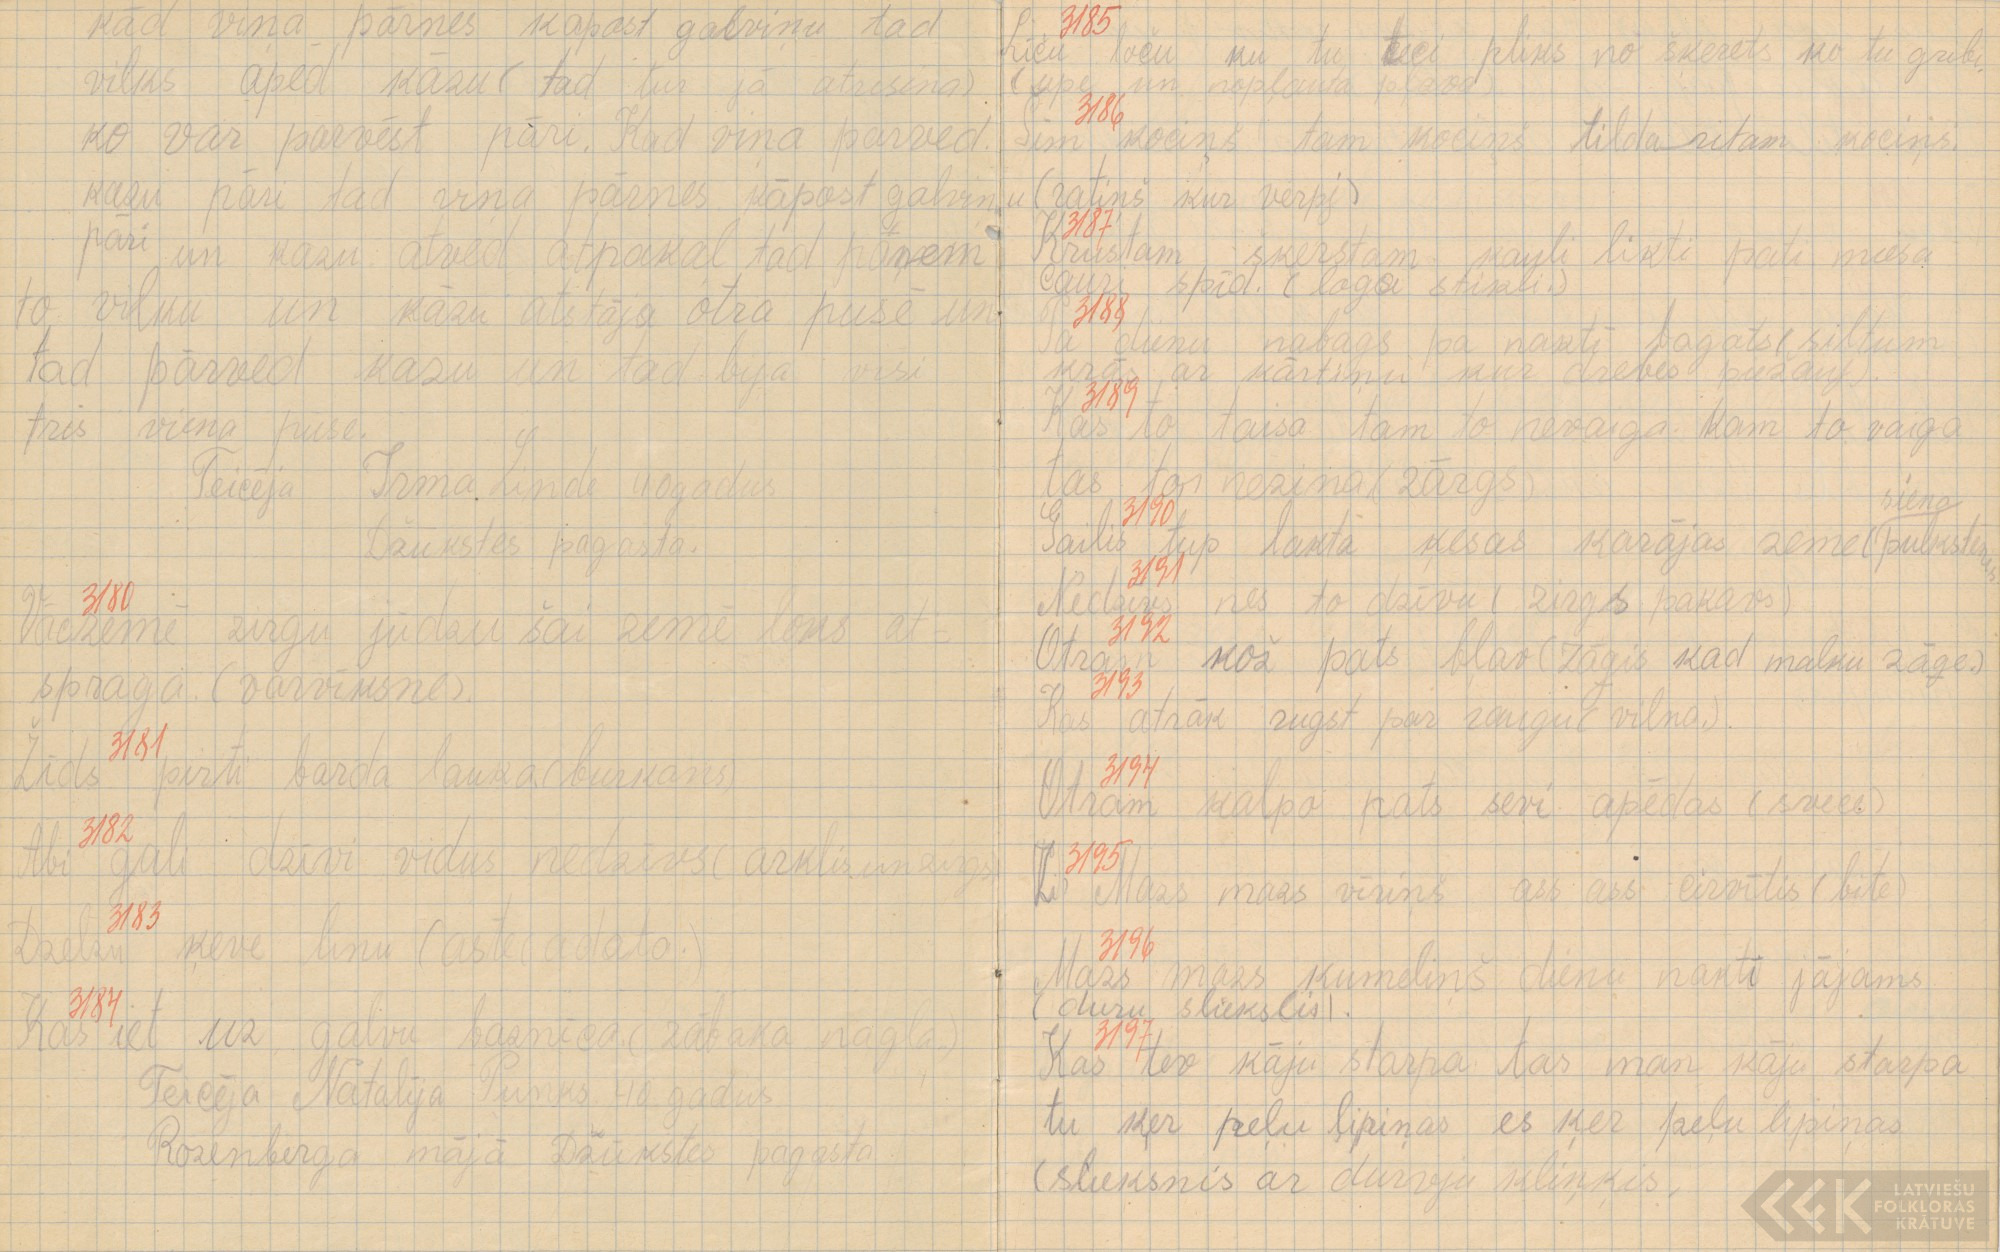 kad viņa pārnes kāpost galviņu tad
vilks apēd kāzu (tad tur jā atrisina)
ko var parvēst pāri. Kad viņa parved.
kazu pāri tad viņa pārnes kāpost galviņu
pāri un kazu atved atpakal tad pāņem
to vilku un kāzu atstāja otra pusē un
tad pārved kazu un tad bija visi
tris viena puse.
Teicēja Irma Linde 40gadus
Džukstes pagasta.
3180
Vāczemē zirgu jūdzu šai zemē loks at=
spraga. (varvīksne).
3181
Žīds pirti barda lauka (burkans)
3182
Abi gali dzīvi vidus nedzīvs (arklis un zirgs)
3183
Dzelzu ķeve linu (aste (adata.)
3184
Kas iet uz galvu baznīca. (zābaka nagla.)
Teicēja Natalija Punks 40 gadus
Rozenberga mājā Džūkstes pagasta
3185
Līču loču ku tu teci pliks no šķerēts ko tu gribi.
(upe un nopļauta pļava)
3186
Šim kociņš tam kociņš tilda ritam kociņš.
(ratiņš kur verpj)
3187
Krustam škerstam kauli likti pati miesa
cauri spīd. (loga stikli.)
3188
Pa dienu nabags pa nakti bagāts (siltum
krās ar kārtiņu kur drebes pužam).
3189
Kas to taisa tam to nevaiga. kam to vaiga
tas to nezina (zārgs)
3190
Gailis tup laktā ķesas karājas zeme (siena pulkstenis)
3191
Nedzīvs nes to dzīvu (zirgs pakavs)
3192
Otram kož pats bļav (zāģis kad malku zāģe.)
3193
Kas atrāk rugst par raugu (vilna.).
3194
Otram kalpo pats sevi apēdas (svecs)
3195
Mazs mazs vīriņš ass ass cirvītis (bite)
3196
Mazs mazs kumeliņš dienu nakti jājams
(duru slieksłis).
3197
Kas tev kāju starpa tas man kāju starpa
tu ķer peļu ļipiņas es ķer peļu lipiņas
(slieksnis ar durvju kliņķis.
LATVIEŠU
FOLKLORAS
KRĀTUVE